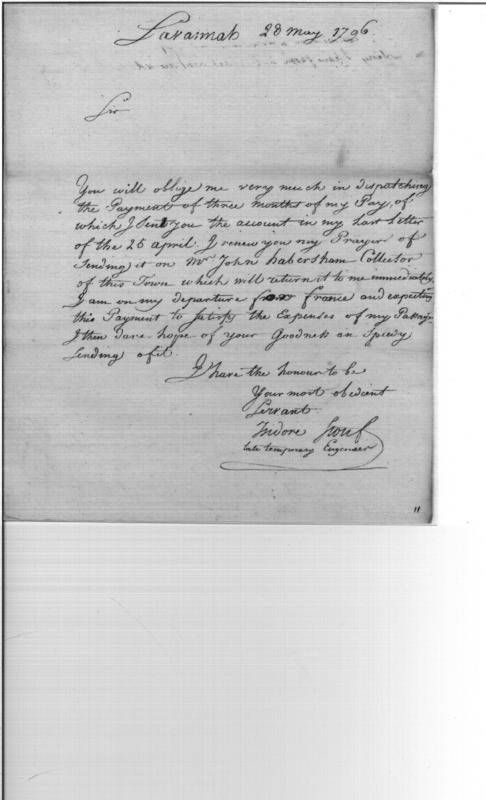 Savannah 28 May 1796.
Sir
You will oblige me very much in dispatching
the Payment of three months of my Pay, of
which I Sent you the account in my last Letter
of the 26 april. I renew you my Prayer of
Sending it on Mr. John habersham Collector
of this Town which will return it to me immediately,
I am on my departure for france and expecting
this Payment to the Expenses of my Passage
I then dare hope of your Goodness an Speedy
Sending of it.
I have the honour to be
Your most obedient
Servant.
Isidore
late temporary Engeneer
11